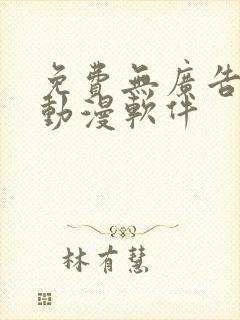 免費無廣告
動漫軟件
林有慧